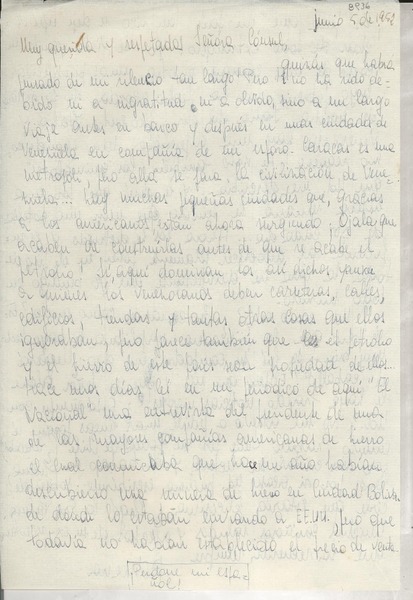 8936
junio 5 de 1952
Muy querida y respetada Señora Cónsul,
quizás que habrá
pensado de mi silencio tan largo! Pero no ha sido de-
bido ni a ingratitud, ni a olvido, sino a un largo
viaje antes en barco y después en unas ciudades de
Venezuela en compañía de mi esposo. Caracas es una
metrópoli, pero allá se para la civilización de Vene-
zuela... hay muchas pequeñas ciudades que, gracias
a los americanos están ahora surgiendo. Ojalá que
acaben de construirlas antes de que se acabe el
petróleo! Sí, aquí dominan los así dichos yankee
a quienes los venezolanos deben carreteras, casas,
edificios, tiendas y tantas otras cosas que ellos
ignoraban, pero parece también que el petróleo
y el hierro de este país sean propiedad de ellos...
Hace unos días leí en un periódico de aquí "El
Nacional" una entrevista del presidente de una
de las mayores compañías americanas de hierro
el cual comunicaba que hace un año habían
descubierto una minera de hierro en Ciudad Bolívar
de donde lo estaban enviando a EE.UU. pero que
todavía no habían establecido el precio de venta.
¡Perdone mi espa-
ñol!